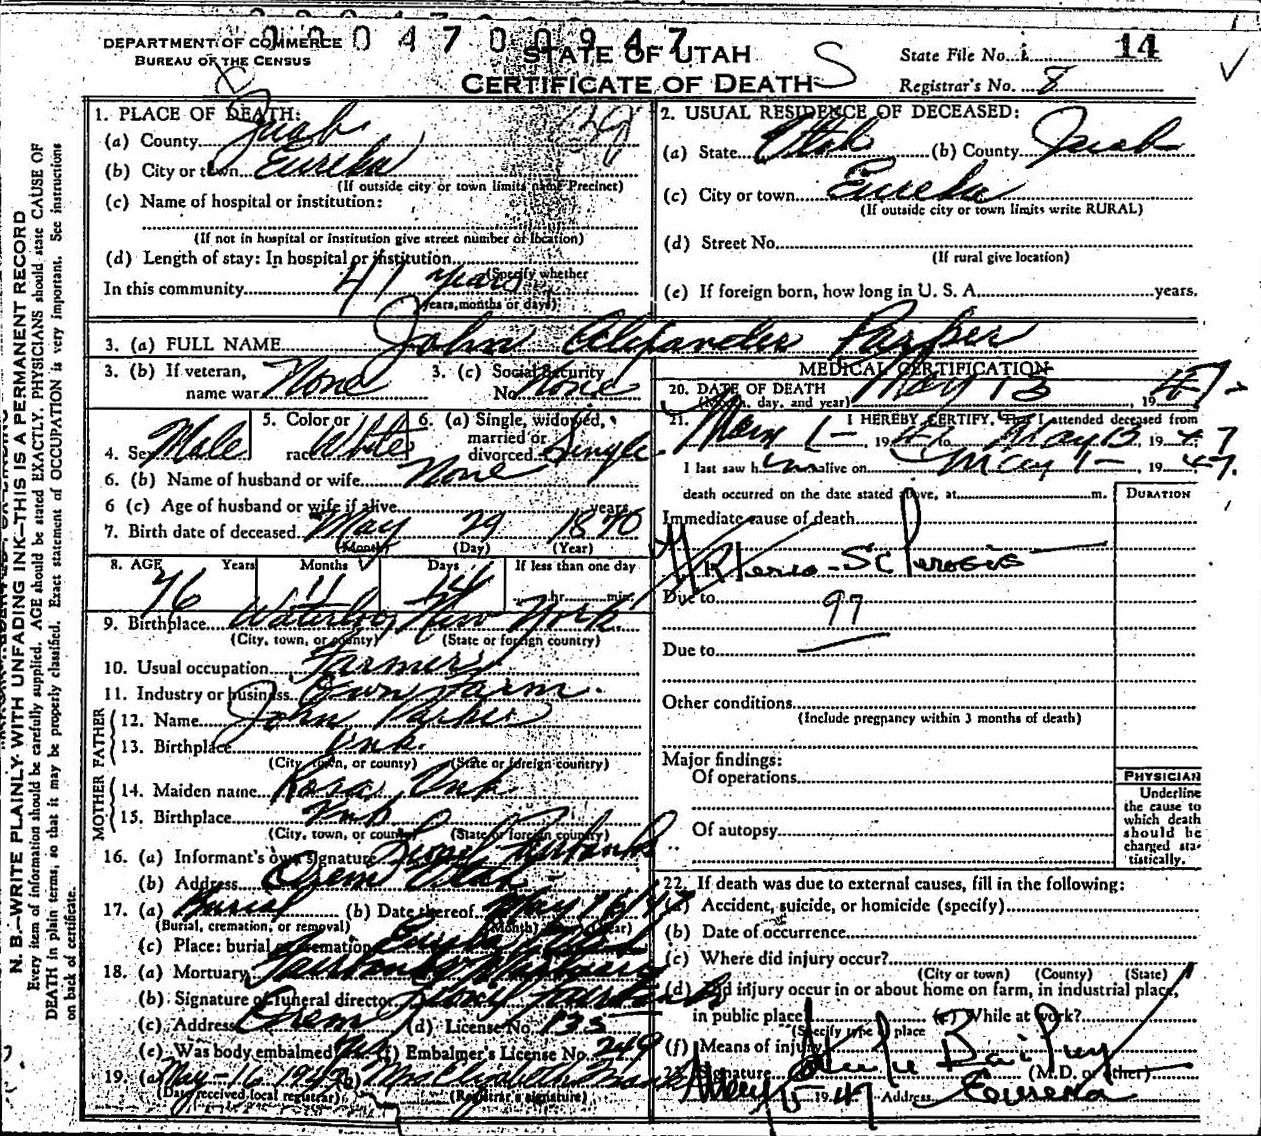 DEPARTMENT OF COMMERCE
BUREAU OF THE CENSUS
0 0 4 7 0 0 0 9 4 7
STATE OF UTAH
CERTIFICATE OF DEATH S
State File No. 14
Registrar's No. 8
N. B.—WRITE PLAINLY WITH UNFADING INK—THIS IS A PERMANENT RECORD
Every item of information should be carefully supplied. AGE should be stated EXACTLY. PHYSICIANS should state CAUSE OF
DEATH in plain terms, so that it may be properly classified. Exact statement of OCCUPATION is very important. See instructions
on back of certificate.
1. PLACE OF DEATH:
(a) County Juab
(b) City or town Eureka
(If outside city or town limits name Precinct)
(c) Name of hospital or institution:
(If not in hospital or institution give street number or location)
(d) Length of stay: In hospital or institution
(Specify whether
In this community 41 years
years, months or days)
2. USUAL RESIDENCE OF DECEASED:
(a) State Utah (b) County Juab
(c) City or town Eureka
(If outside city or town limits write RURAL)
(d) Street No.
(If rural give location)
(e) If foreign born, how long in U. S. A. years.
3. (a) FULL NAME John Alexander Parker
3. (b) If veteran, name war None
3. (c) Social Security No. None
4. Sex Male
5. Color or race White
6. (a) Single, widowed, married or divorced Single
6. (b) Name of husband or wife None
6 (c) Age of husband or wife if alive years
7. Birth date of deceased May 29 1870
(Month) (Day) (Year)
8. AGE Years Months Days If less than one day
76 11 14 hr. min.
9. Birthplace Waterloo New York
(City, town, or county) (State or foreign country)
10. Usual occupation Farmer
11. Industry or business Own Farm
FATHER
12. Name John Parker
13. Birthplace Unk.
(City, town, or county) (State or foreign country)
MOTHER
14. Maiden name Rosa Unk
15. Birthplace Unk
(City, town, or county) (State or foreign country)
16. (a) Informant's own signature
(b) Address Orem Utah
17. (a) Burial (b) Date thereof May 16/47
(Burial, cremation, or removal) (Month) (Year)
(c) Place: burial or cremation Eureka Utah
18. (a) Mortuary
(b) Signature of funeral director
(c) Address Orem (d) License No. 135
(e) Was body embalmed (f) Embalmer's License No. 249
19. (a) May-16 1947 (b) Mrs Elizabeth
(Date received local registrar) (Registrar's signature)
MEDICAL CERTIFICATION
20. DATE OF DEATH May 13 1947
(Month, day, and year)
21. I HEREBY CERTIFY, That I attended deceased from
May 1- 1947 to May 13, 1947
I last saw him alive on May 1- 1947.
death occurred on the date stated above, at m.
DURATION
Immediate cause of death
Arterio-Sclerosis
Due to 97
Due to
Other conditions
(Include pregnancy within 3 months of death)
Major findings:
Of operations
Of autopsy
PHYSICIAN
Underline
the cause to
which death
should be
charged sta-
tistically.
22. If death was due to external causes, fill in the following:
(a) Accident, suicide, or homicide (specify)
(b) Date of occurrence
(c) Where did injury occur?
(City or town) (County) (State)
(d) Did injury occur in or about home on farm, in industrial place,
in public place (e) While at work?
(Specify type of place
(f) Means of injury
23. Signature Steele Bailey (M.D. or other)
May 15 1947 Address Eureka